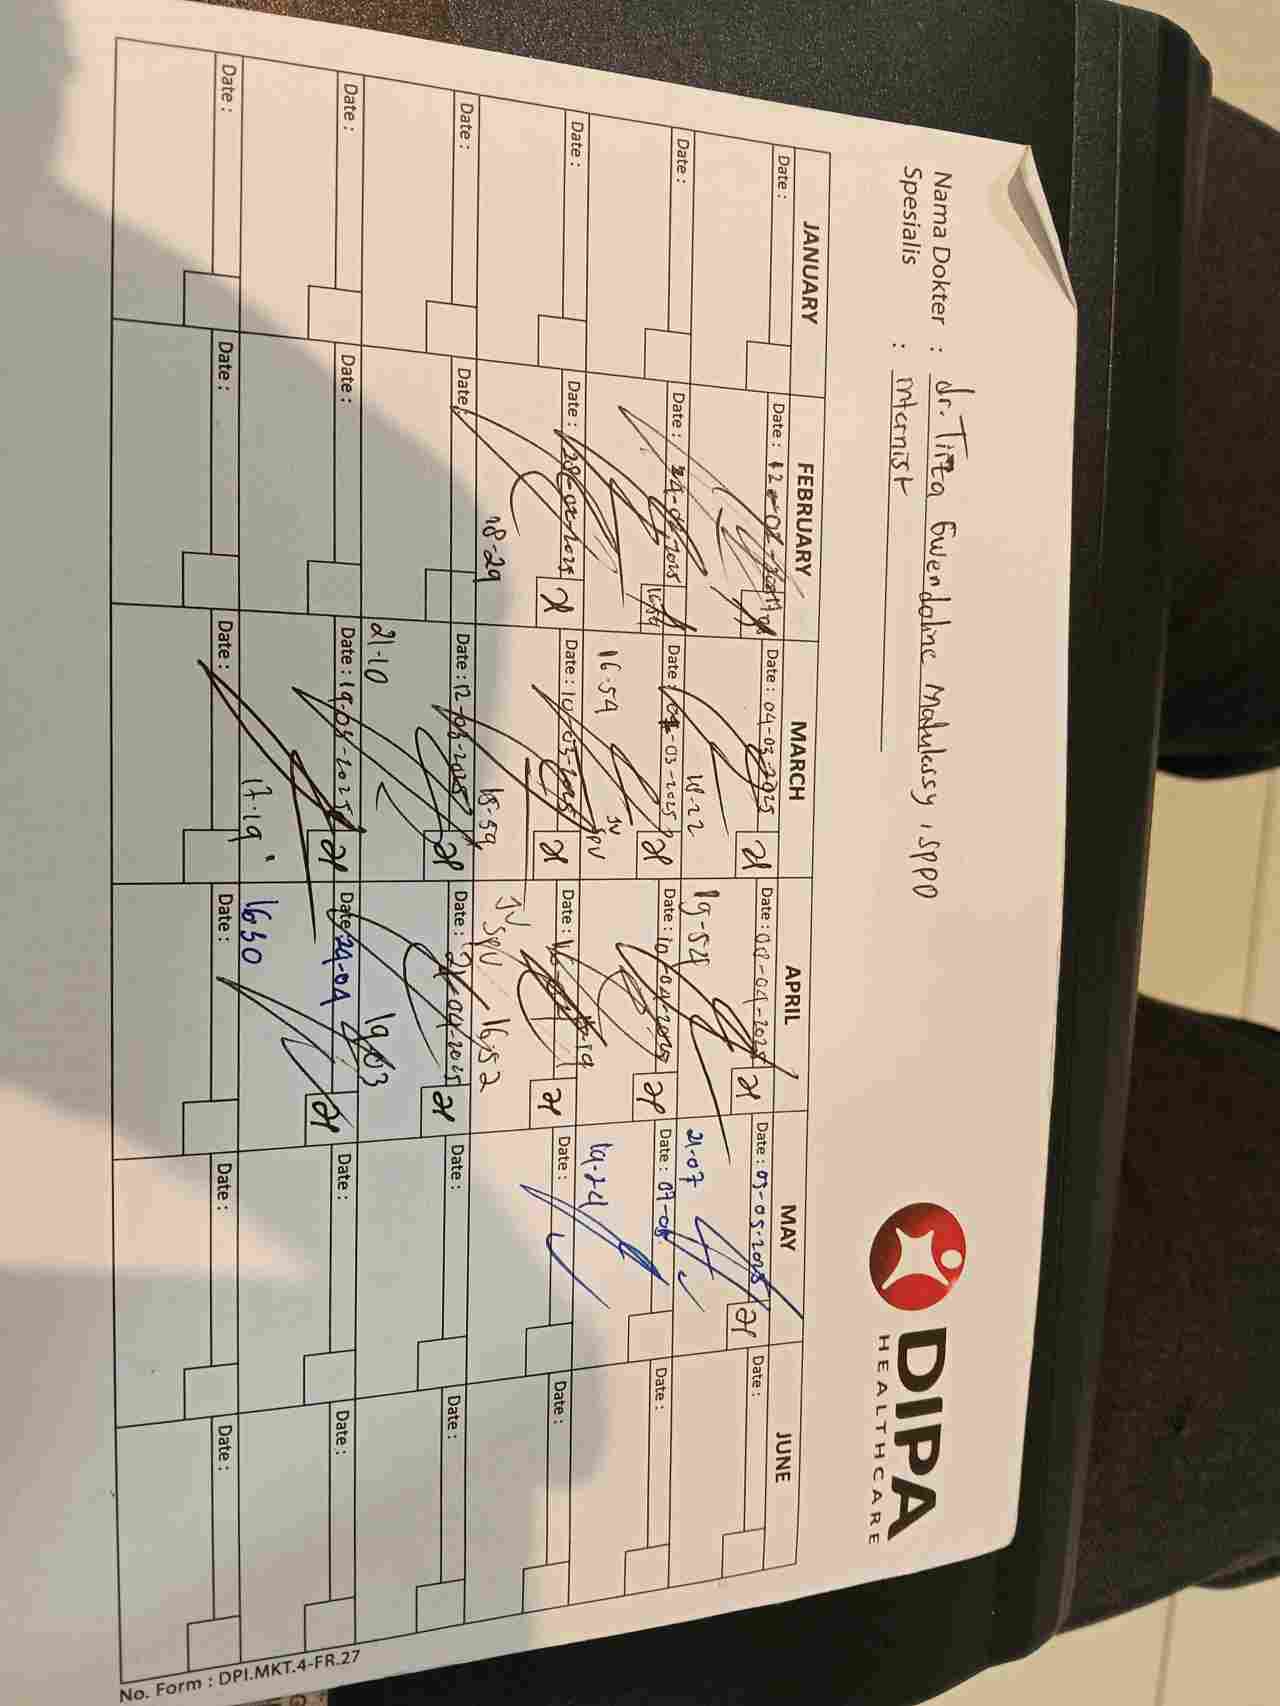 DIPA
HEALTHCARE
Nama Dokter : dr. Tirza Gwendoline Matulessy, SPPD
Spesialis : Internist
JANUARY FEBRUARY MARCH APRIL MAY JUNE
Date : Date : 12-02-2025 Date : 04-03-2025 Date : 08-04-2025 Date : 03-05-2025 Date :
18-22 19-54 21-07
Date : Date : 24-02-2025 Date : 07-03-2025 Date : 10-04-2025 Date : 07-05 Date :
16-54 JV SPV 19-24
Date : Date : 28-02-2025 Date : 10-03-2025 Date : Date : Date :
18-29 18-59 JV SPV 16-52
Date : Date : Date : 12-03-2025 Date : 21-04-2025 Date : Date :
21-10 19-03
Date : Date : Date : 19-03-2025 Date : 24-04 Date : Date :
17-19 1630
Date : Date : Date : Date : Date : Date :
No. Form : DPI.MKT.4-FR.27